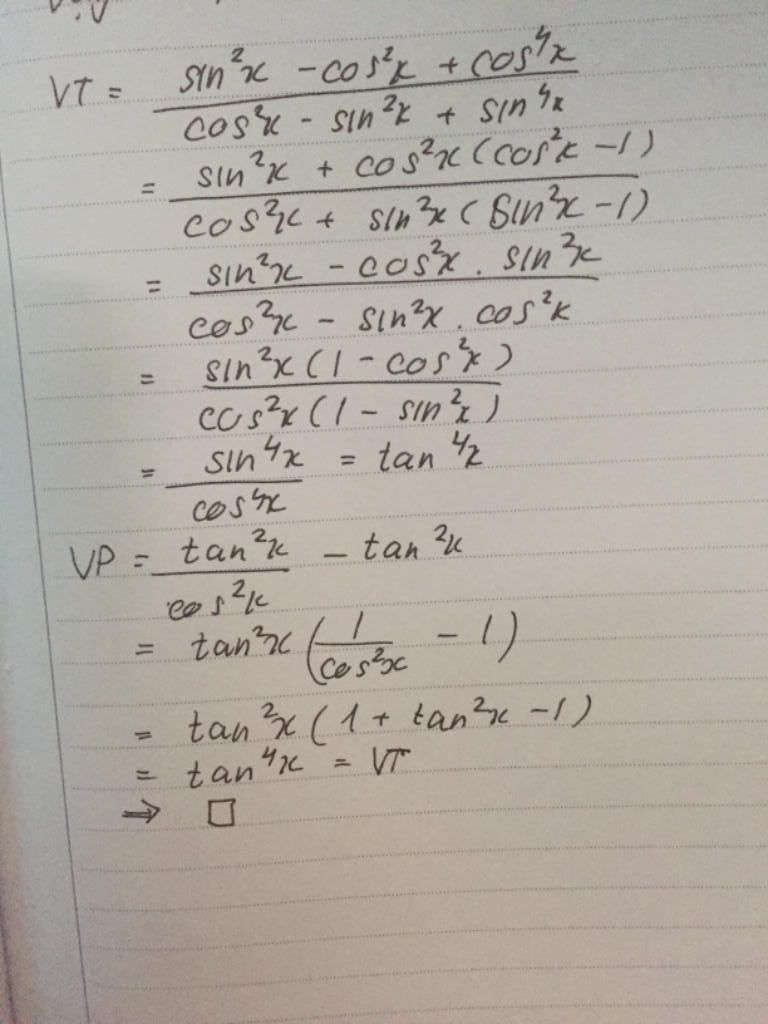 VT = (sin²x - cos²x + cos⁴x) / (cos²x - sin²x + sin⁴x)
= (sin²x + cos²x (cos²x - 1)) / (cos²x + sin²x (sin²x - 1))
= (sin²x - cos²x . sin²x) / (cos²x - sin²x . cos²x)
= (sin²x (1 - cos²x)) / (cos²x (1 - sin²x))
= sin⁴x / cos⁴x = tan⁴x
VP = tan²x / cos²x - tan²x
= tan²x (1 / cos²x - 1)
= tan²x (1 + tan²x - 1)
= tan⁴x = VT
⇒ □